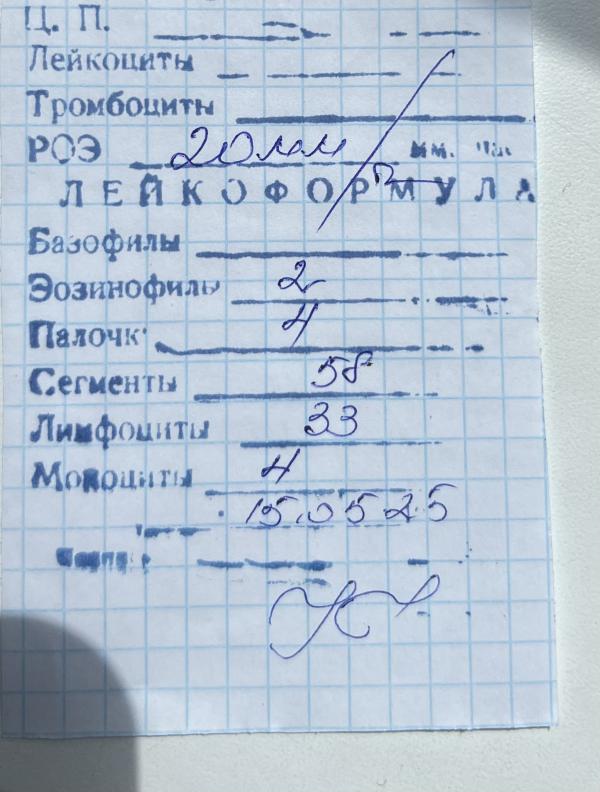 Ц. П.
Лейкоциты
Тромбоциты
РОЭ 20мм/ мм. час
ЛЕЙКОФОРМУЛА
Базофилы
Эозинофилы 2
Палочк 4
Сегменты 58
Лимфоциты 33
Моноциты 4
15.05 25